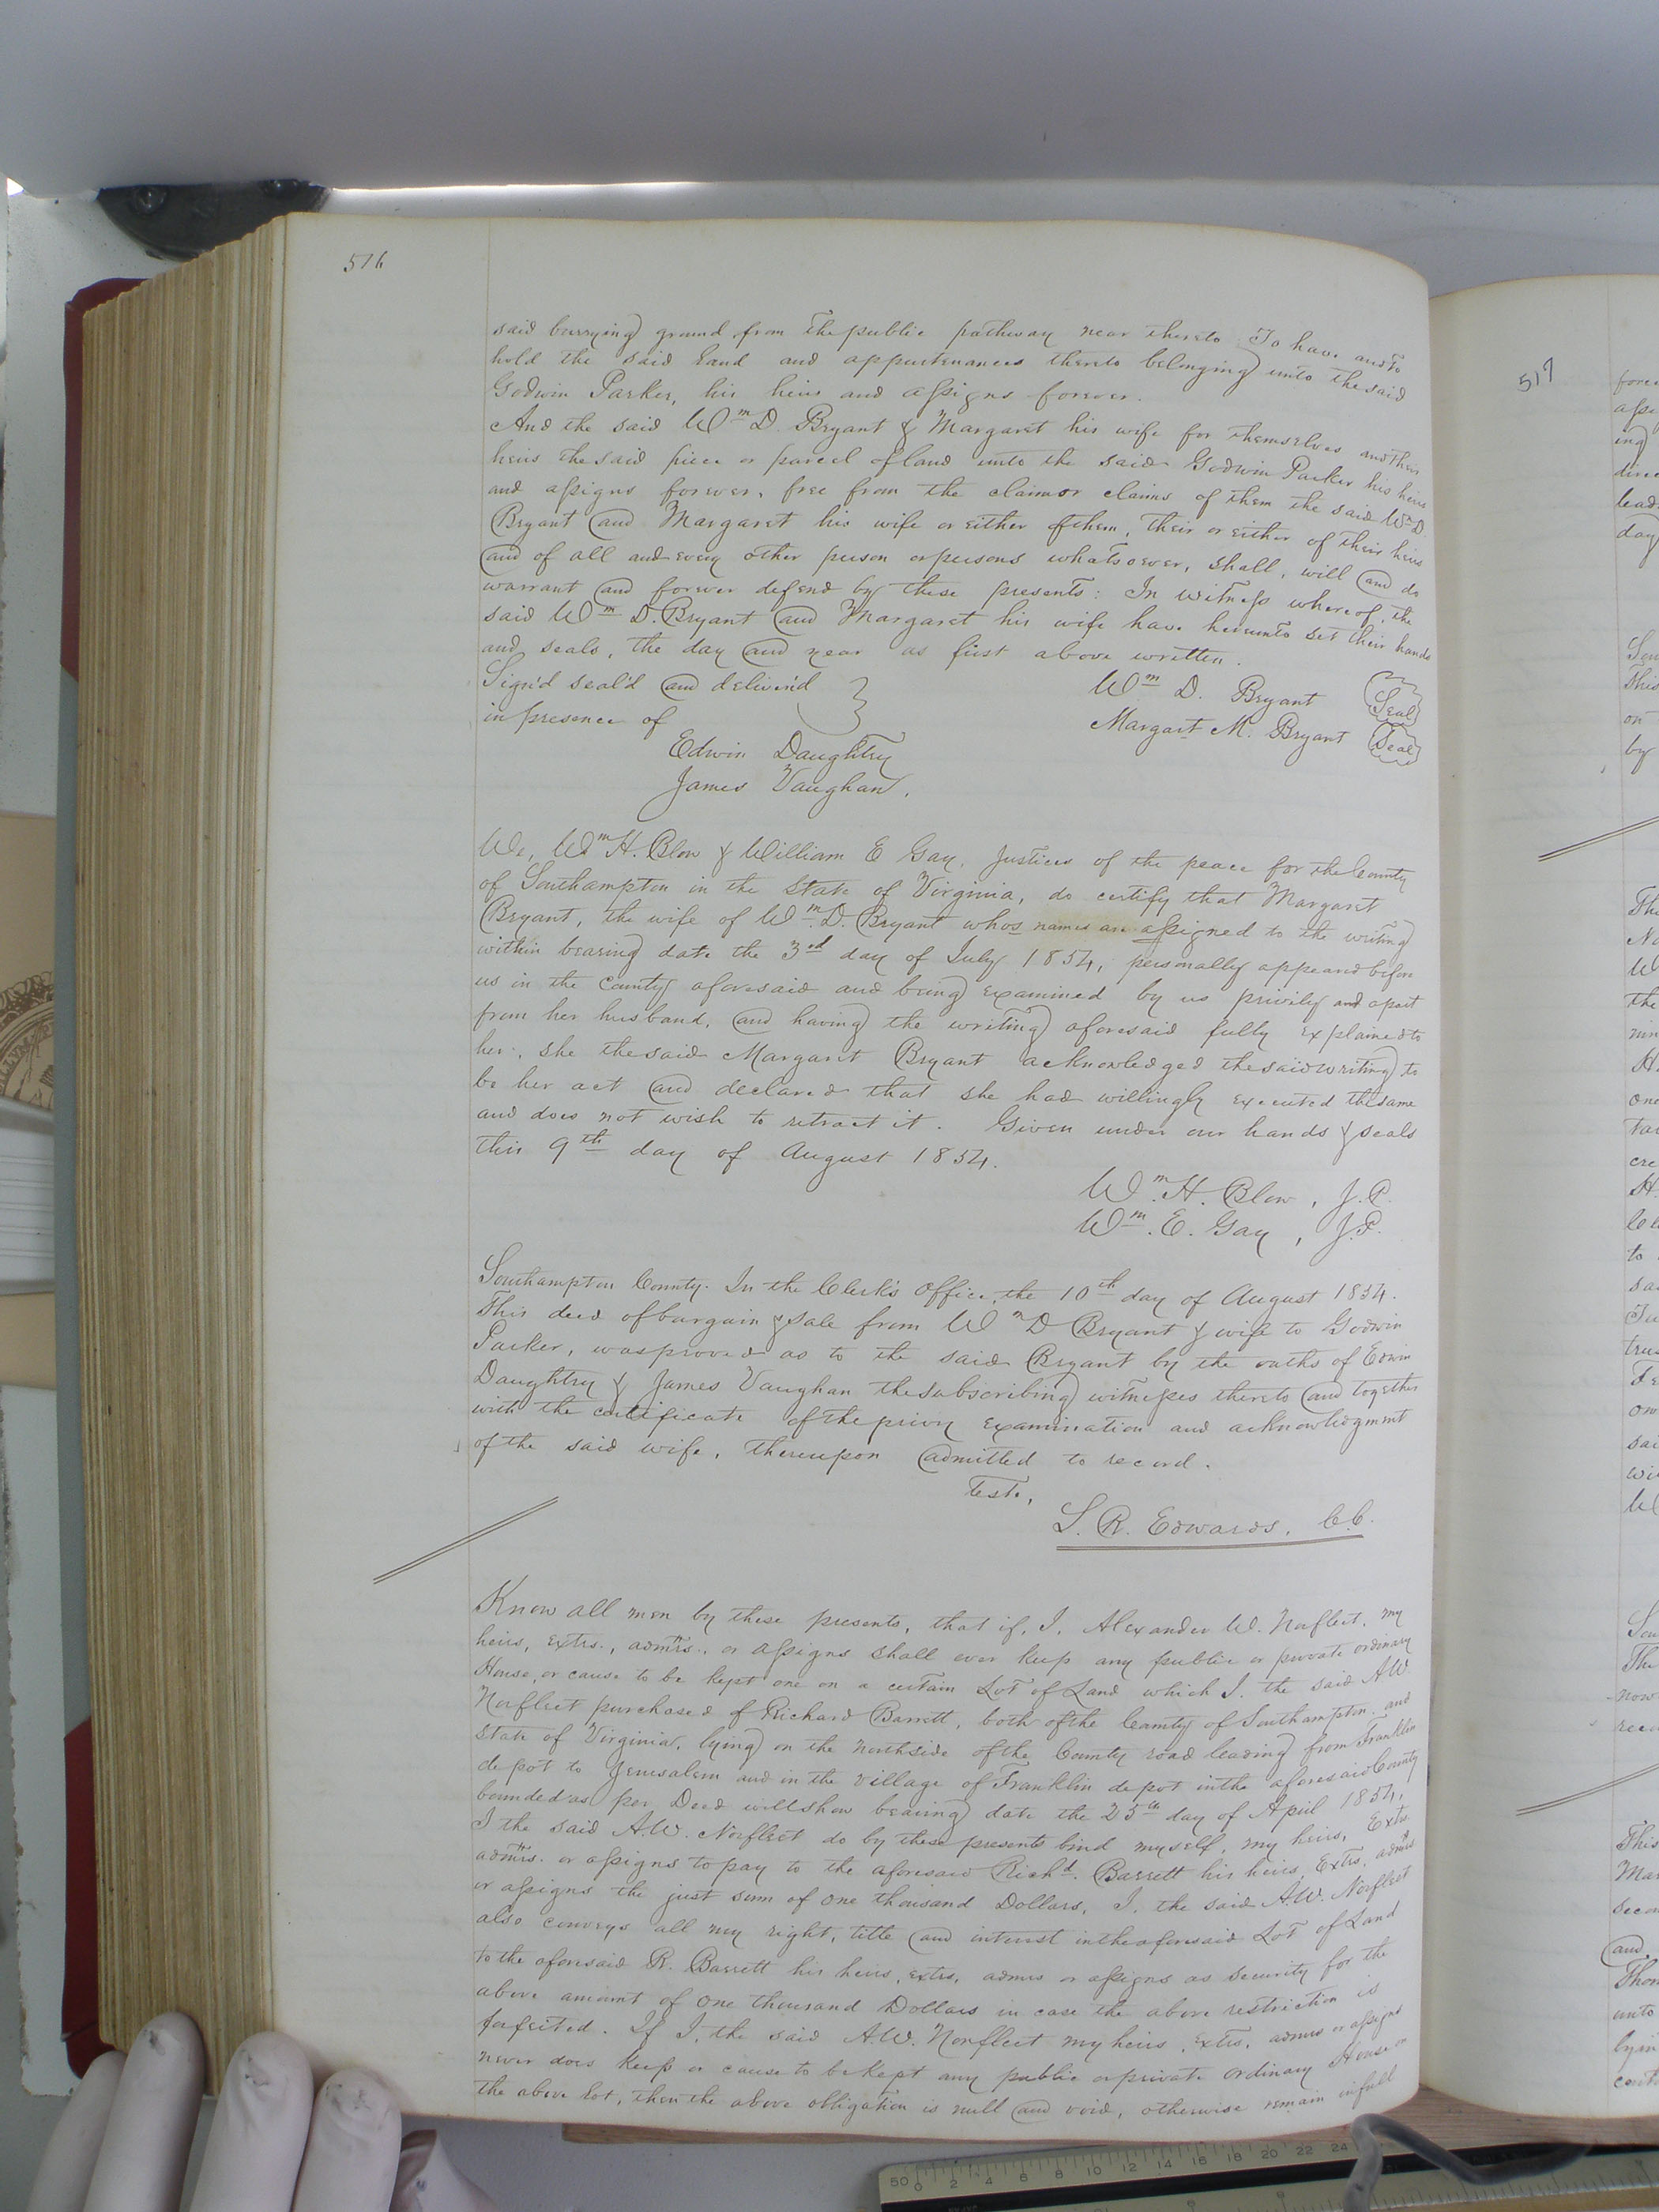 516
said burrying ground from the public pathway near thereto To have and to
hold the said land and appurtenances thereto belonging unto the said
Godwin Parker, his heirs and assigns forever.
And the said Wm D. Bryant & Margaret his wife for themselves and their
heirs the said piece or parcel of land unto the said Godwin Parker his heirs
and assigns forever, free from the claim or claims of them the said Wm D.
Bryant and Margaret his wife or either of them, their or either of their heirs
and of all and every other person or persons whatsoever, shall, will and do
warrant and forever defend by these presents: In witness whereof, the
said Wm D. Bryant and Margaret his wife have hereunto set their hands
and seals, the day and year as first above written.
Sign'd seal'd and deliver'd
in presence of
Wm D. Bryant Seal
Margaret M. Bryant Seal
Edwin Daughtry
James Vaughan.
We, Wm H. Blow & William E Gay, Justices of the peace for the County
of Southampton in the State of Virginia, do certify that Margaret
Bryant, the wife of Wm D. Bryant whos names are assigned to the writing
within bearing date the 3rd day of July 1854, personally appeared before
us in the County aforesaid and being examined by us privily and apart
from her husband, and having the writing aforesaid fully explained to
her, she the said Margaret Bryant acknowledged the said writing to
be her act and declared that she had willingly executed the same
and does not wish to retract it. Given under our hands & seals
this 9th day of August 1854.
Wm H. Blow, J.P.
Wm. E. Gay, J.P.
Southampton County. In the Clerk's Office, the 10th day of August 1854.
This deed of bargain & sale from Wm D Bryant & wife to Godwin
Parker, was proved as to the said Bryant by the oaths of Edwin
Daughtry & James Vaughan the subscribing witnesses thereto and together
with the certificate of the privy examination and acknowledgment
of the said wife, thereupon admitted to record.
Teste,
L. R. Edwards, C.C.
Know all men by these presents, that if, I, Alexander W. Norfleet, my
heirs, extrs., admrs., or assigns shall ever keep any public or private ordinary
House, or cause to be kept one on a certain Lot of Land which I, the said A.W.
Norfleet purchased of Richard Barrett, both of the County of Southampton and
State of Virginia, lying on the north side of the County road leading from Franklin
depot to Jerusalem and in the village of Franklin depot in the aforesaid County
bounded as per Deed will show bearing date the 25th day of April 1854,
I the said A.W. Norfleet do by these presents bind myself, my heirs, Extrs.
admrs. or assigns to pay to the aforesaid Richd. Barrett his heirs, Extrs, admrs
or assigns the just sum of one thousand Dollars, I, the said A.W. Norfleet
also conveys all my right, title and interest in the aforesaid Lot of Land
to the aforesaid R. Barrett his heirs, extrs, admrs or assigns as security for the
above amount of one thousand Dollars in case the above restriction is
forfeited. If I, the said A.W. Norfleet my heirs, Extrs, admrs or assigns
never does keep or cause to be kept any public or private ordinary House on
the above lot, then the above obligation is null and void, otherwise remain in full
517